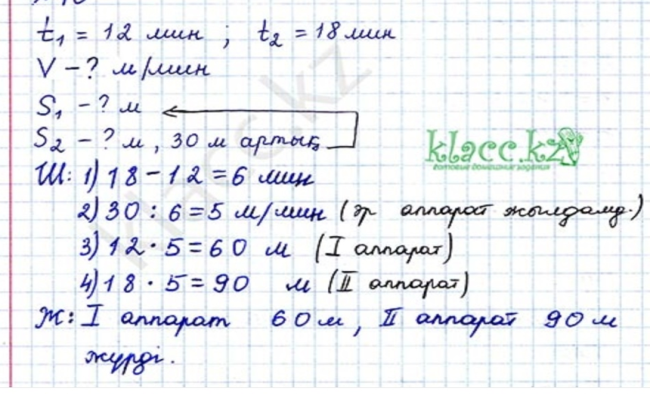 t₁ = 12 мин ; t₂ = 18 мин
V - ? м/мин
S₁ - ? м
S₂ - ? м, 30 м артық
klacc.kz
готовые домашние задания
Ш: 1) 18 - 12 = 6 мин
2) 30 : 6 = 5 м/мин (әр аппарат жылдамд.)
3) 12 · 5 = 60 м (I аппарат)
4) 18 · 5 = 90 м (II аппарат)
Ж: I аппарат 60 м, II аппарат 90 м
жүрді.